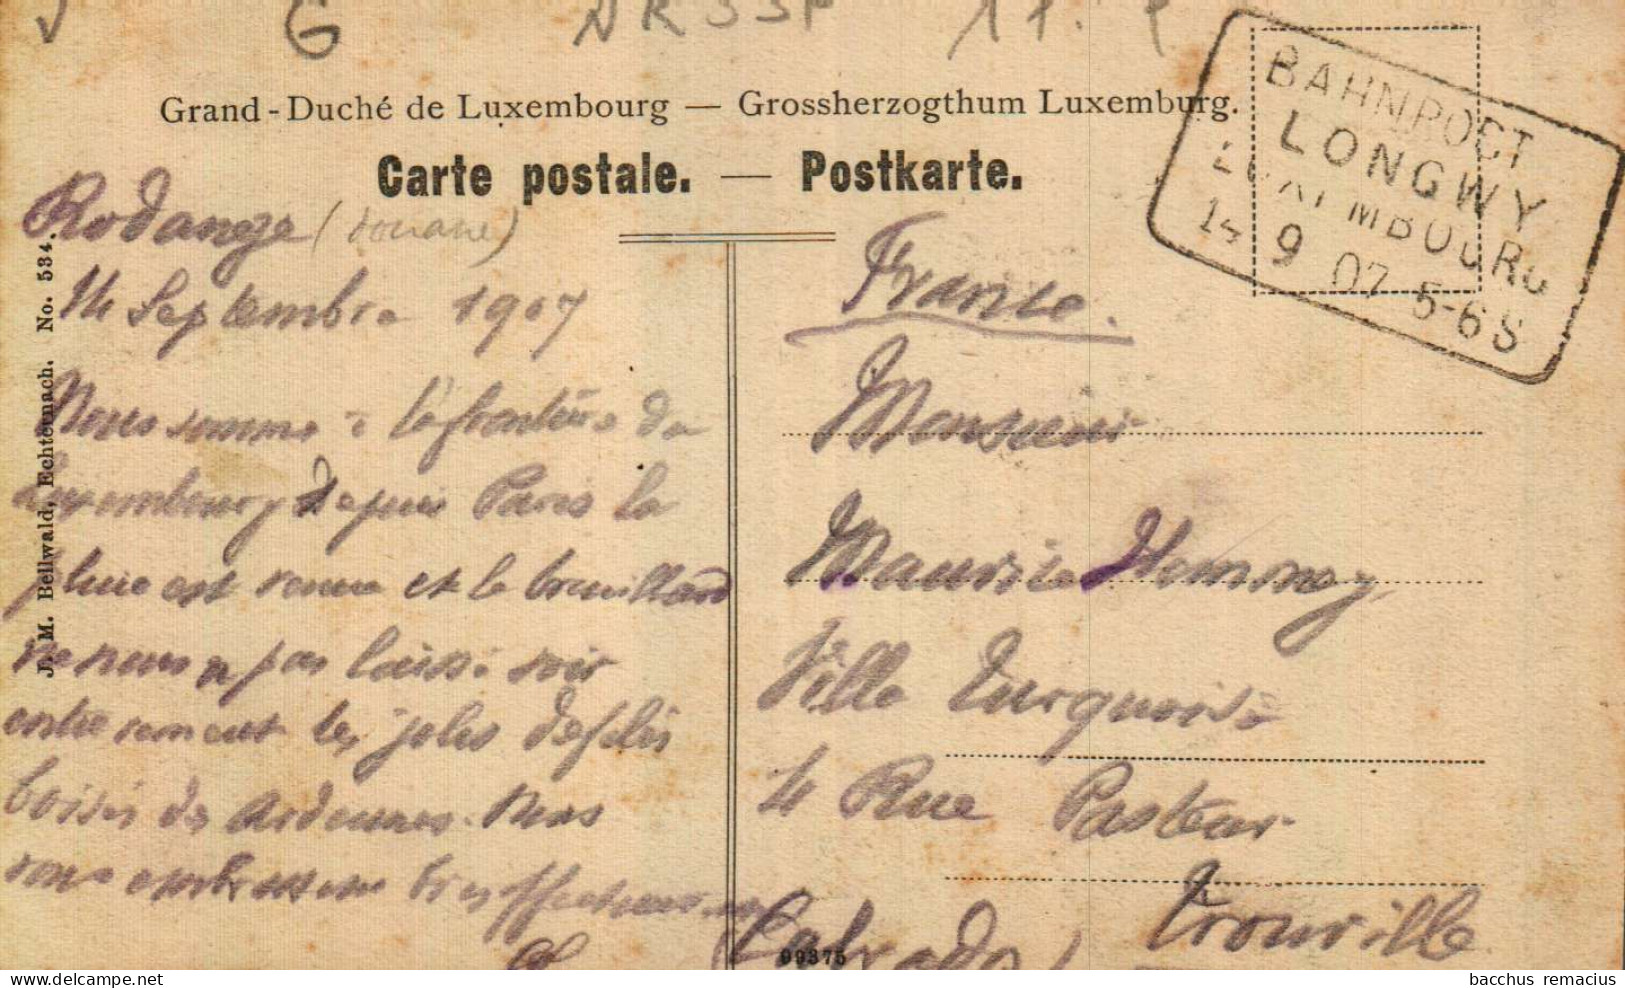 G
Grand-Duché de Luxembourg — Grossherzogthum Luxemburg.
Carte postale. — Postkarte.
BAHNPOST
LONGWY
LUXEMBOURG
14 9 07 5-6 S
Rodange (douane)
14 Septembre 1907
Nous sommes à la frontière du
Luxembourg depuis Paris la
pluie est venue et le brouillard
ne nous a pas laissé voir
entièrement les jolis défilés
boisés des Ardennes. Nous
vous embrassons bien affectueusement
France.
Monsieur
Maurice Hommey
Ville Turquoise
4 Rue Pasteur
Trouville
(Calvados)
J. M. Bellwald, Echternach. No. 534.
99375
bacchus remacius